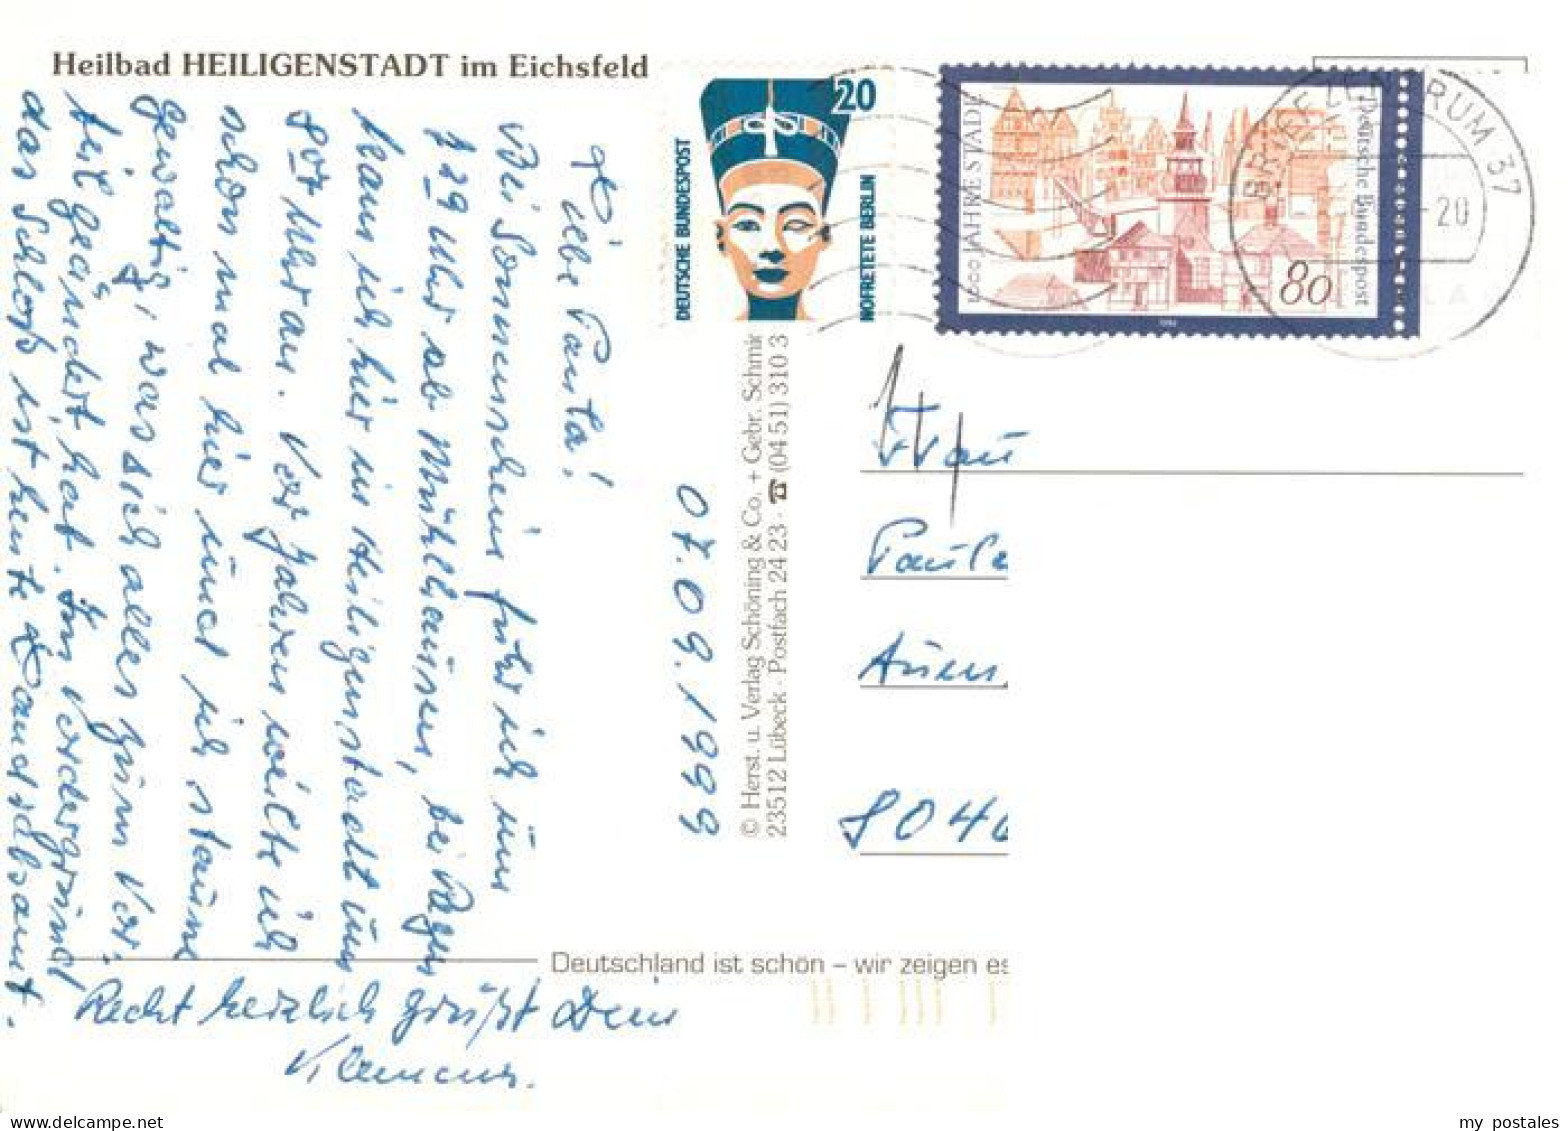 Heilbad HEILIGENSTADT im Eichsfeld
Liebe Paula!
Bei Sonnenschein fuhr ich um
7 29 Uhr ab Mühlhausen, bei Regen
kam ich hier in Heiligenstadt um
8 07 Uhr an. Vor Jahren weilte ich
schon mal hier und ich staune
gewaltig, was sich alles zum Vor-
teil geändert hat. Im Vordergrund
das Schloß ist heute Landratsamt.
Recht herzlich grüßt Dein
Klemens.
07.09.1999
© Herst. u. Verlag Schöning & Co. + Gebr. Schmi
23512 Lübeck · Postfach 24 23 · ☎ (04 51) 310 3
Deutschland ist schön – wir zeigen es
20
DEUTSCHE BUNDESPOST
NOFRETETE BERLIN
1000 JAHRE STADE
Deutsche Bundespost
80
BRIEFZENTRUM 37
-20
Frau
Paula
8046
my postales